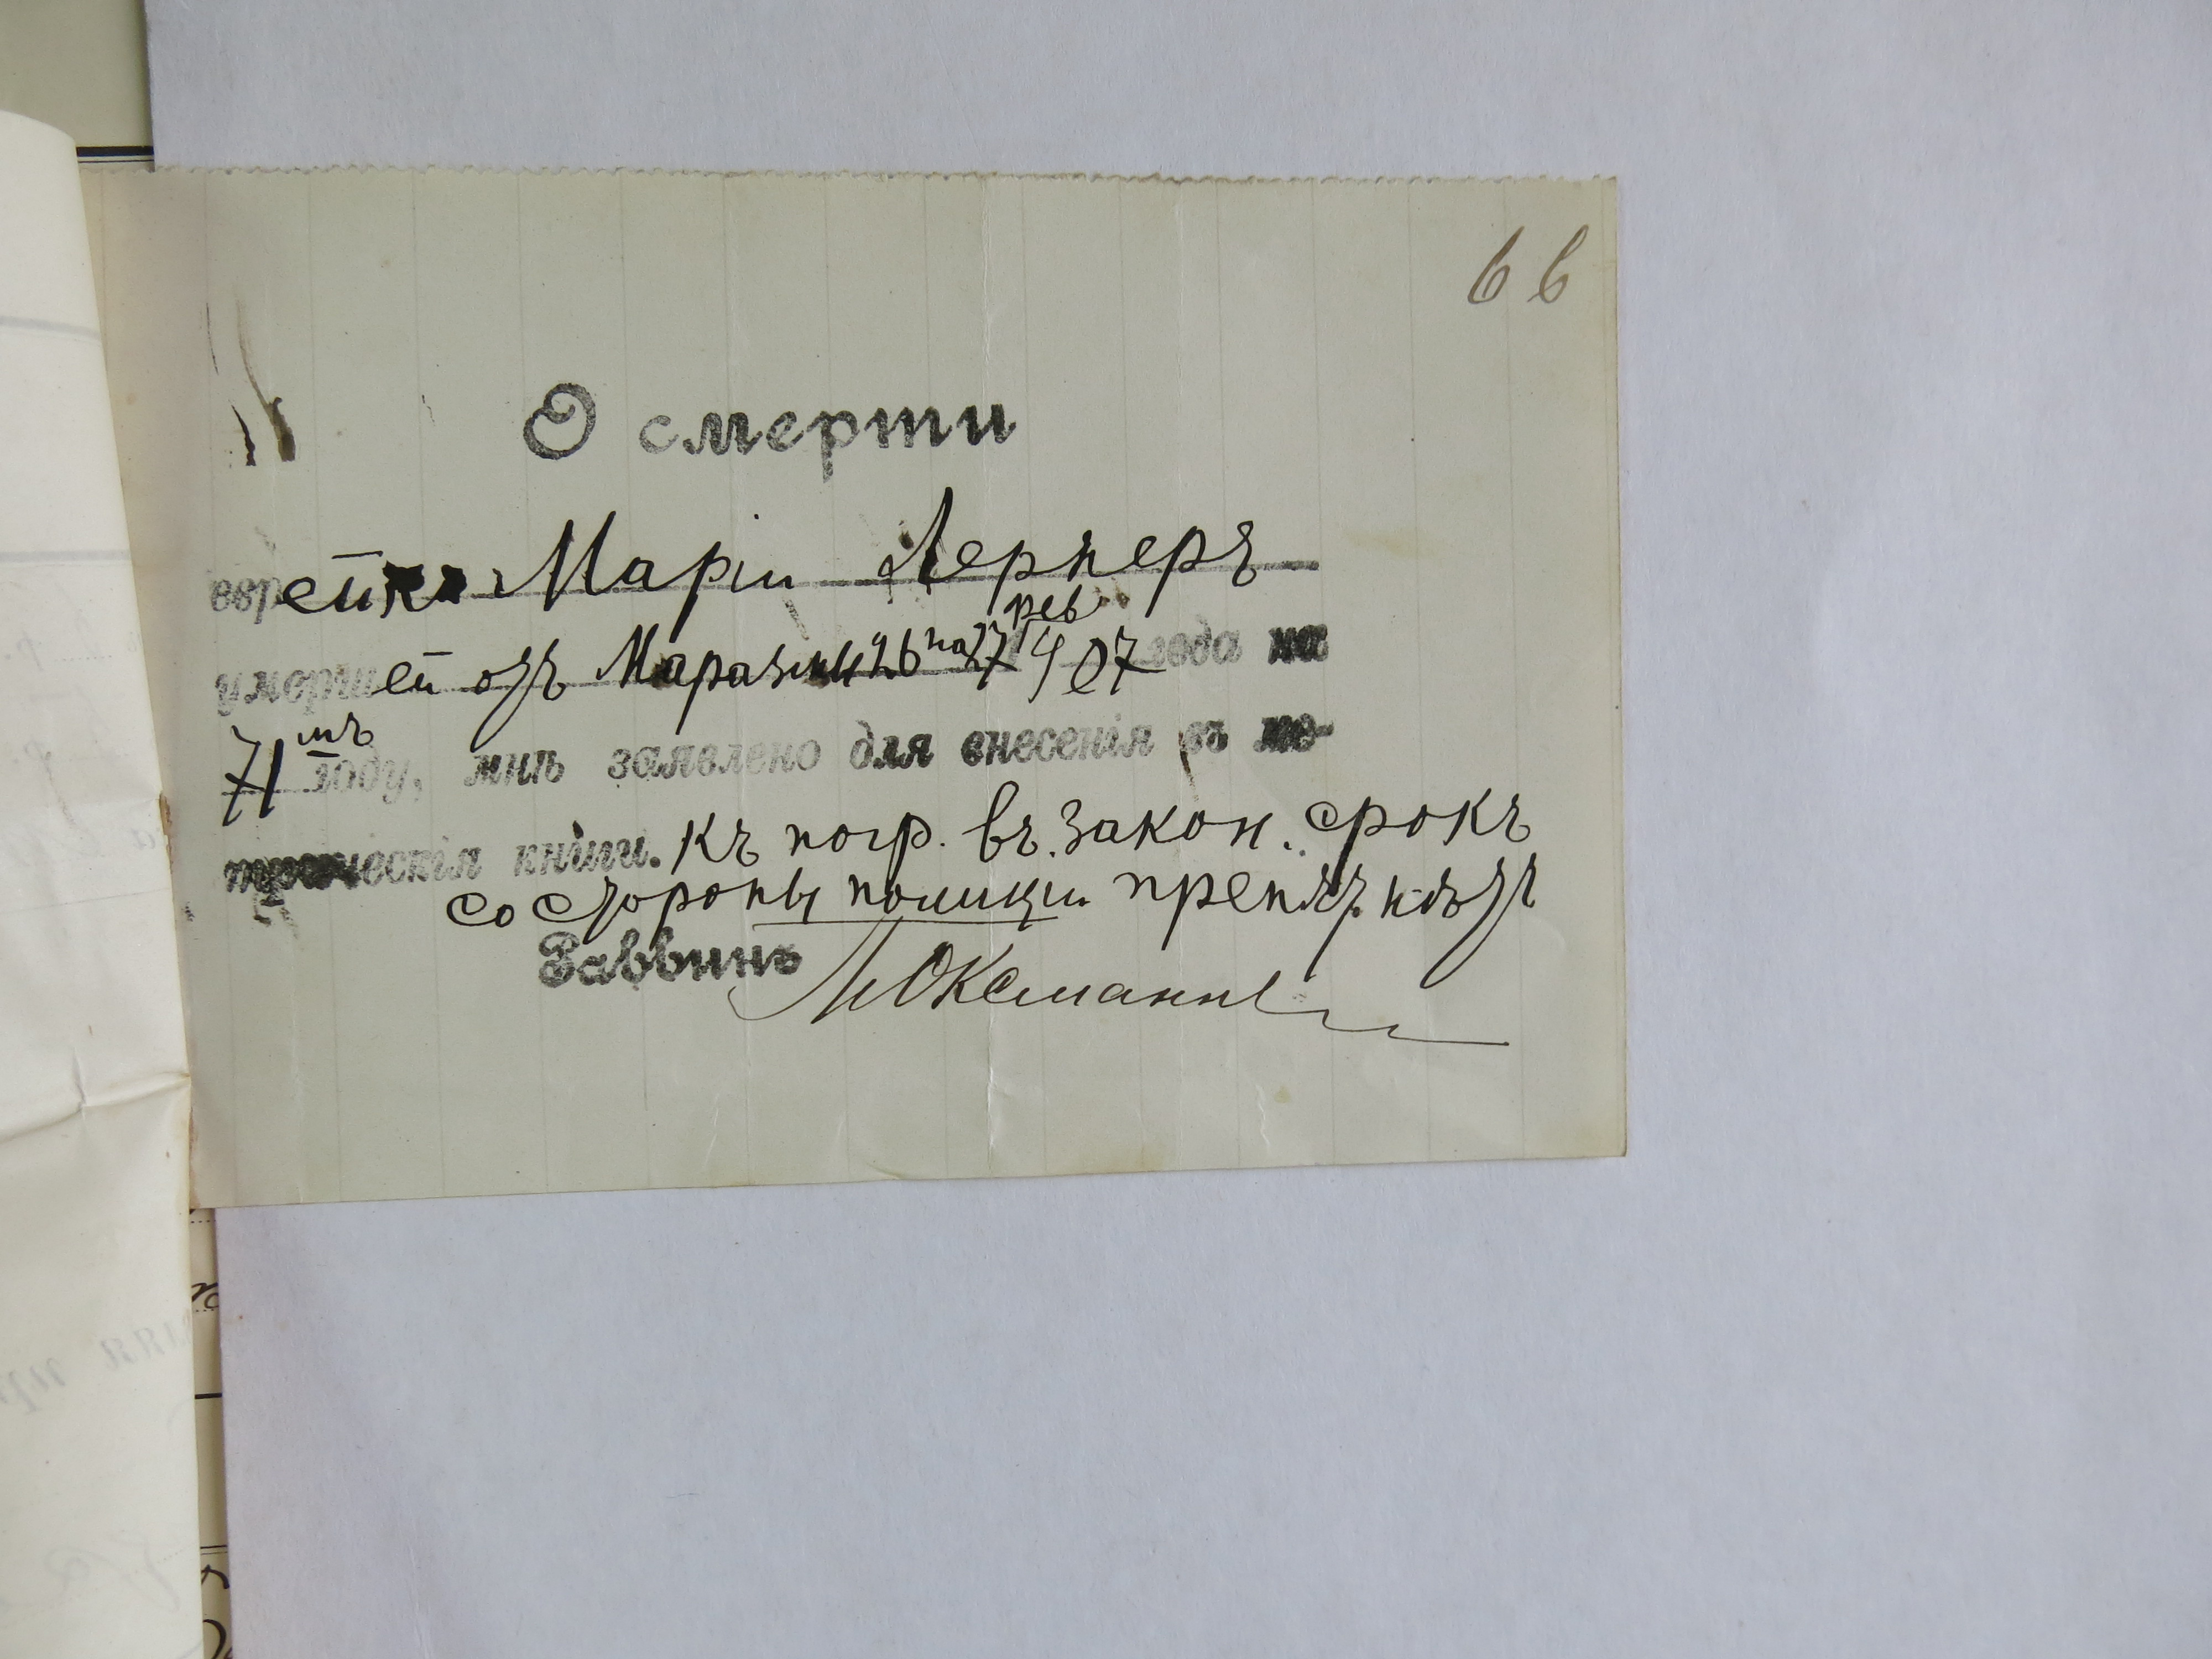 66
О смерти
еврейки Маріи Лернеръ
умершей отъ Маразми 26 на 27 фев 907 года на
71мъ году, мнѣ заявлено для внесенія въ ме-
трическія книги. къ погр. въ закон. срокъ
со стороны полиціи препят. нѣтъ
Раввинъ